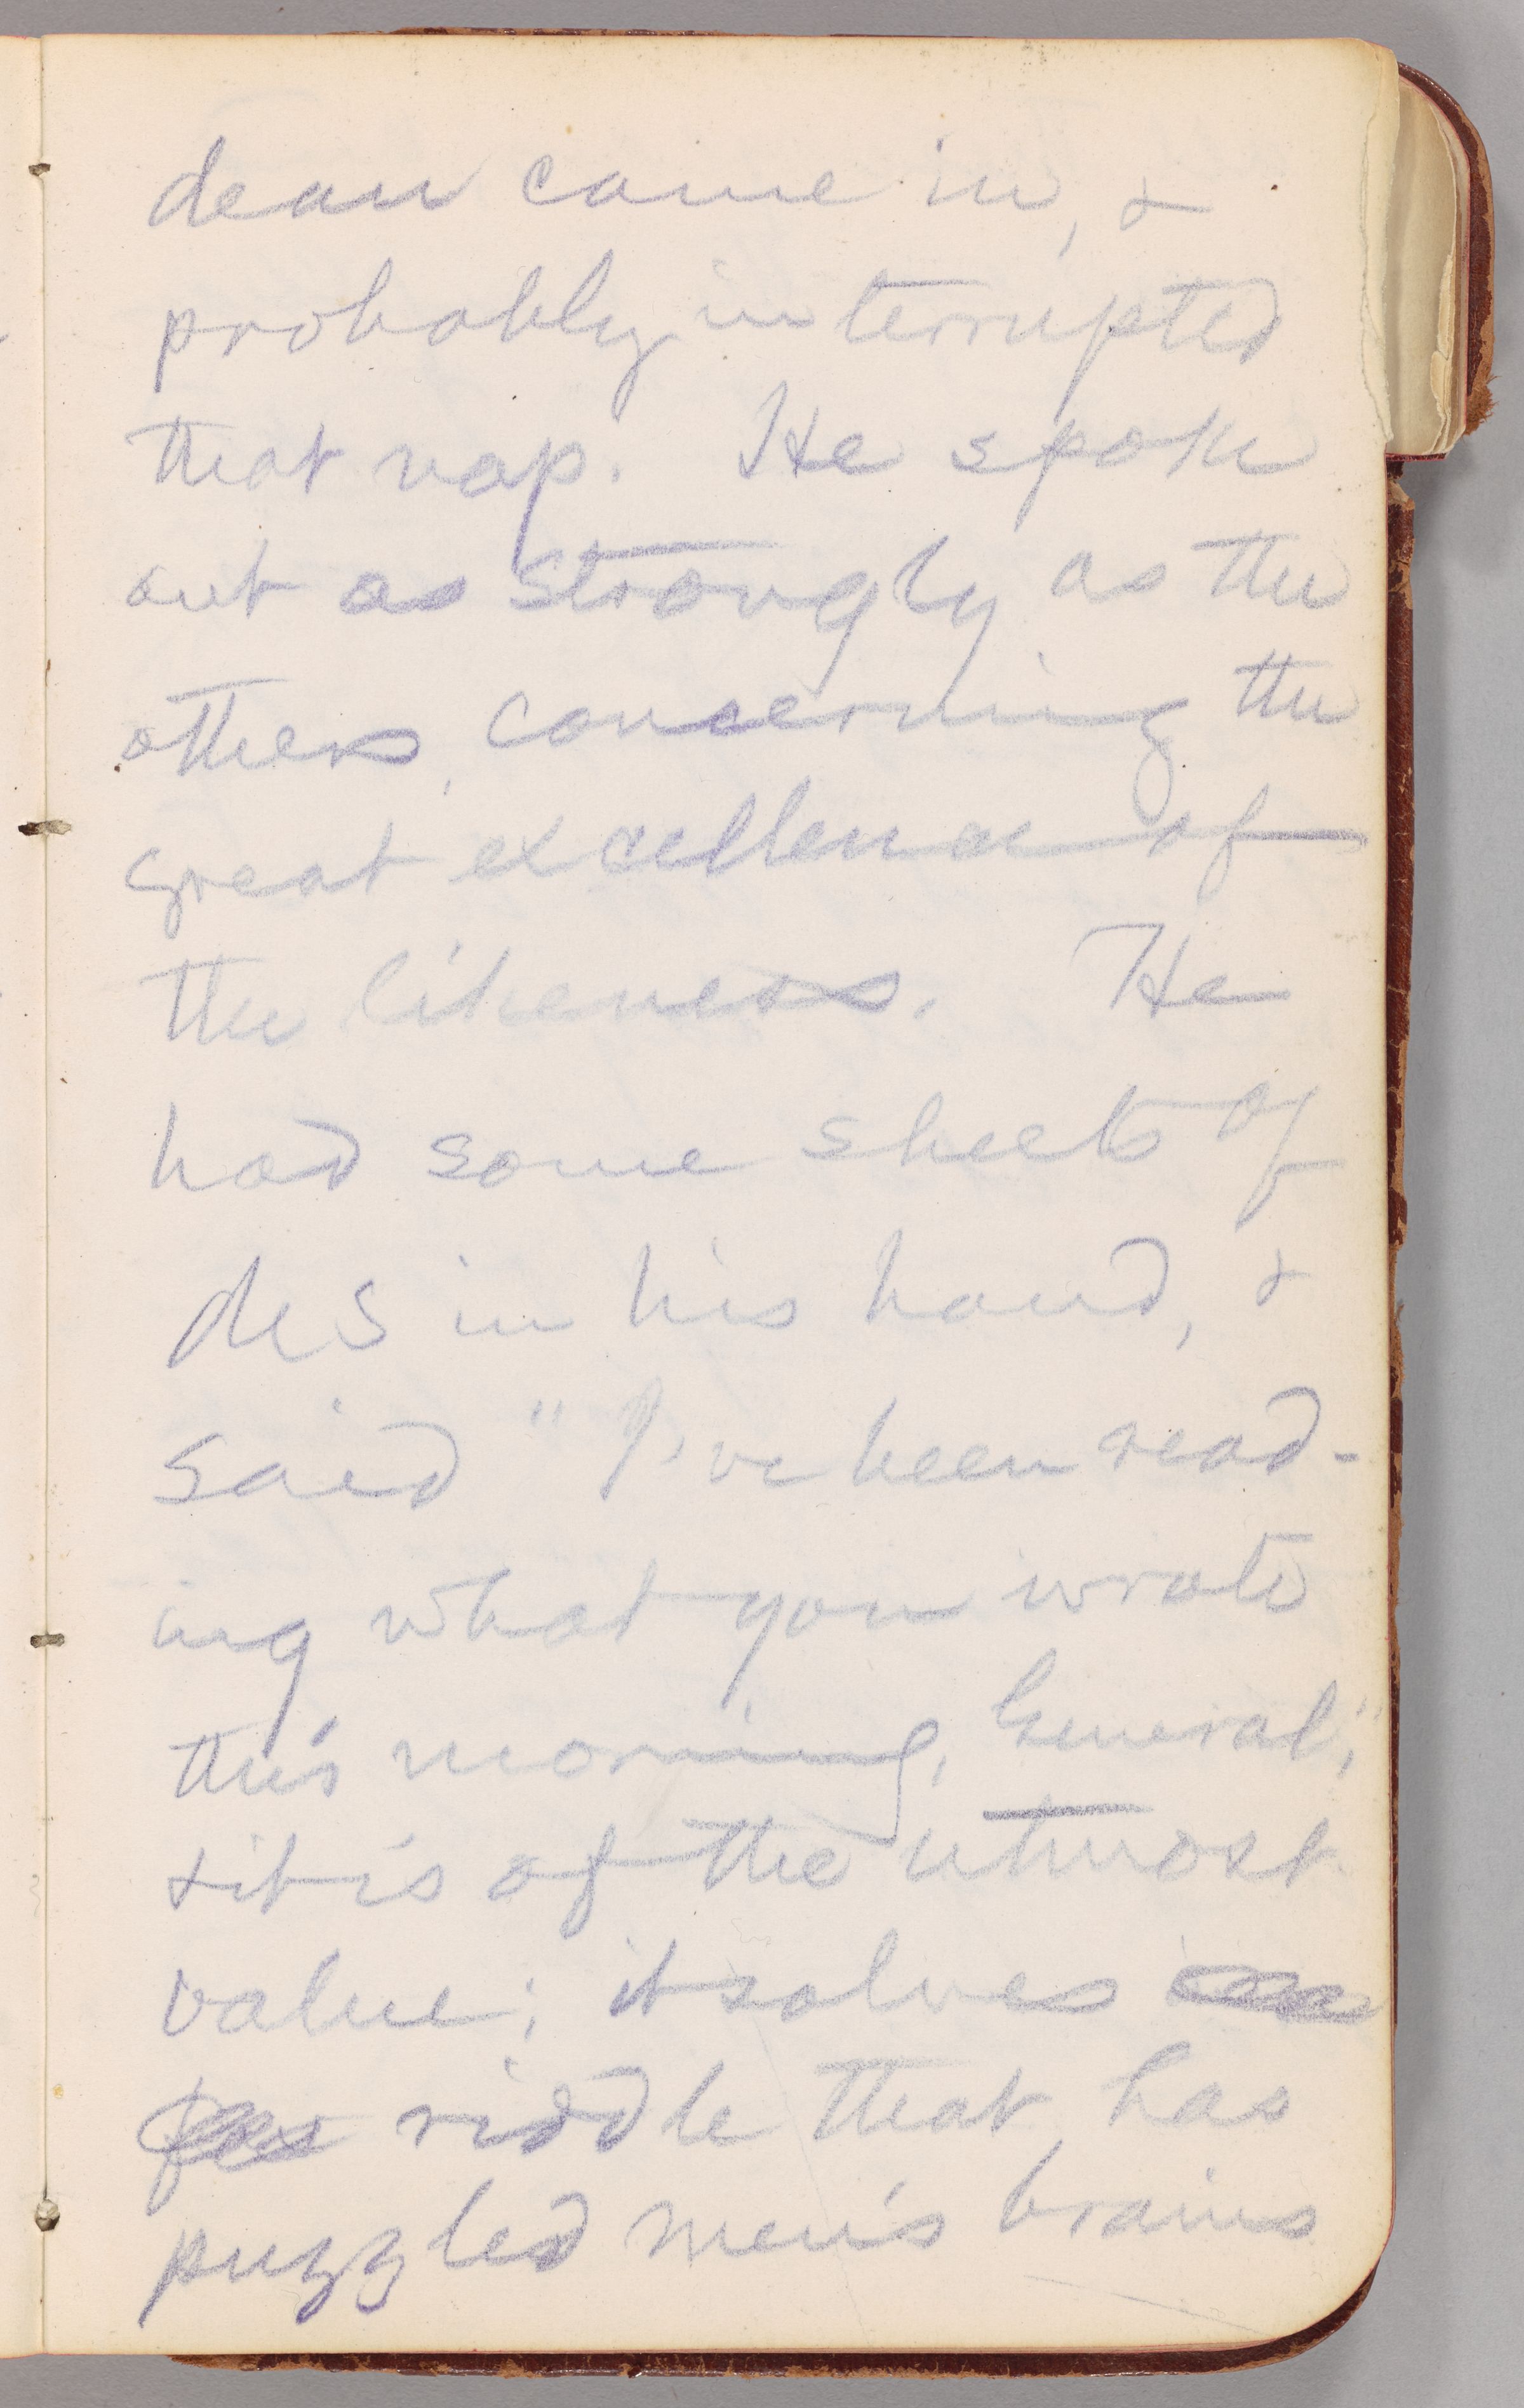 deau came in, &
probably interrupted
that nap. He spoke
out as strongly as the
others, concerning the
great excellence of
the likeness. He
had some sheets of
MS in his hand, &
said "I've been read-
ing what you wrote
this morning, General,"
& it is of the utmost
value; it solves
riddle that has
puzzled men's brains